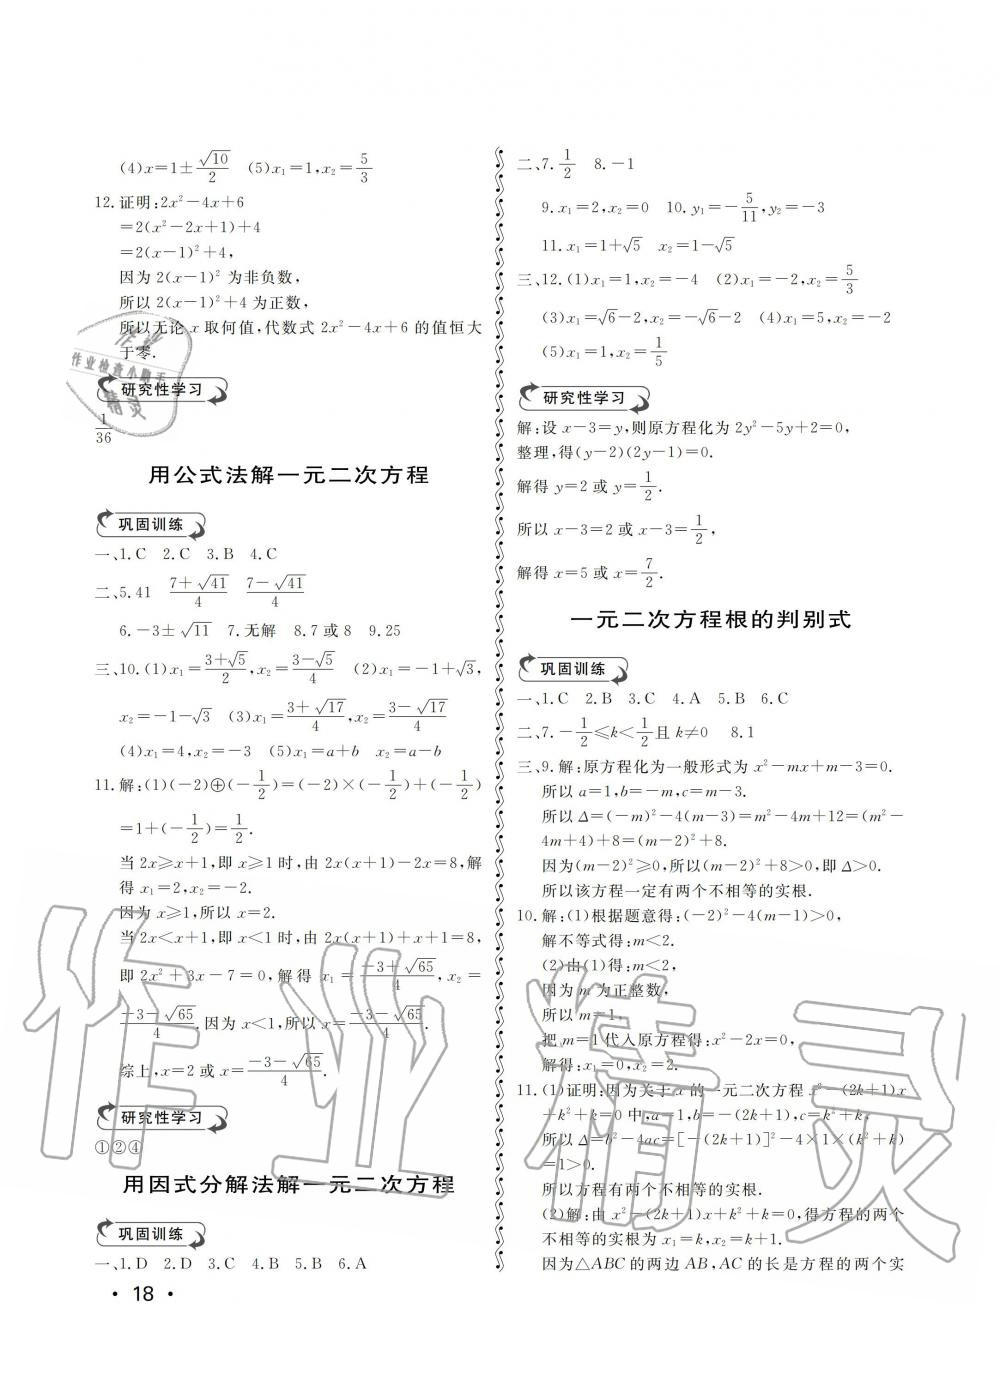 (4)x=1±√10/2 (5)x₁=1,x₂=5/3
12.证明:2x²-4x+6
=2(x²-2x+1)+4
=2(x-1)²+4,
因为 2(x-1)² 为非负数,
所以 2(x-1)²+4 为正数,
所以无论 x 取何值,代数式 2x²-4x+6 的值恒大
于零.
研究性学习
1/36
用公式法解一元二次方程
巩固训练
一、1.C 2.C 3.B 4.C
二、5.41 (7+√41)/4 (7-√41)/4
6.-3±√11 7.无解 8.7 或 8 9.25
三、10.(1)x₁=(3+√5)/2,x₂=(3-√5)/4 (2)x₁=-1+√3,
x₂=-1-√3 (3)x₁=(3+√17)/4,x₂=(3-√17)/4
(4)x₁=4,x₂=-3 (5)x₁=a+b x₂=a-b
11.解:(1)(-2)⊕(-1/2)=(-2)×(-1/2)+(-1/2)
=1+(-1/2)=1/2.
当 2x≥x+1,即 x≥1 时,由 2x(x+1)-2x=8,解
得 x₁=2,x₂=-2.
因为 x≥1,所以 x=2.
当 2x<x+1,即 x<1 时,由 2x(x+1)+x+1=8,
即 2x²+3x-7=0,解得 x₁=(-3+√65)/4,x₂=
(-3-√65)/4,因为 x<1,所以 x=(-3-√65)/4.
综上,x=2 或 x=(-3-√65)/4.
研究性学习
①②④
用因式分解法解一元二次方程
巩固训练
一、1.D 2.D 3.C 4.B 5.B 6.A
• 18 •
二、7.1/2 8.-1
9.x₁=2,x₂=0 10.y₁=-5/11,y₂=-3
11.x₁=1+√5 x₂=1-√5
三、12.(1)x₁=1,x₂=-4 (2)x₁=-2,x₂=5/3
(3)x₁=√6-2,x₂=-√6-2 (4)x₁=5,x₂=-2
(5)x₁=1,x₂=1/5
研究性学习
解:设 x-3=y,则原方程化为 2y²-5y+2=0,
整理,得(y-2)(2y-1)=0.
解得 y=2 或 y=1/2.
所以 x-3=2 或 x-3=1/2,
解得 x=5 或 x=7/2.
一元二次方程根的判别式
巩固训练
一、1.C 2.B 3.C 4.A 5.B 6.C
二、7.-1/2≤k<1/2且 k≠0 8.1
三、9.解:原方程化为一般形式为 x²-mx+m-3=0.
所以 a=1,b=-m,c=m-3.
所以 Δ=(-m)²-4(m-3)=m²-4m+12=(m²-
4m+4)+8=(m-2)²+8.
因为(m-2)²≥0,所以(m-2)²+8>0,即 Δ>0.
所以该方程一定有两个不相等的实根.
10.解:(1)根据题意得:(-2)²-4(m-1)>0,
解不等式得:m<2.
(2)由(1)得:m<2,
因为 m 为正整数,
所以 m=1,
把 m=1 代入原方程得:x²-2x=0,
解得:x₁=0,x₂=2.
11.(1)证明:因为关于 x 的一元二次方程 x²-(2k+1)x
+k²+k=0 中,a=1,b=-(2k+1),c=k²+k,
所以 Δ=b²-4ac=[-(2k+1)]²-4×1×(k²+k)
=1>0.
所以方程有两个不相等的实根.
(2)解:由 x²-(2k+1)x+k²+k=0,得方程的两个
不相等的实根为 x₁=k,x₂=k+1.
因为△ABC 的两边 AB,AC 的长是方程的两个实
作业精灵
作业
作业检查小助手
精灵